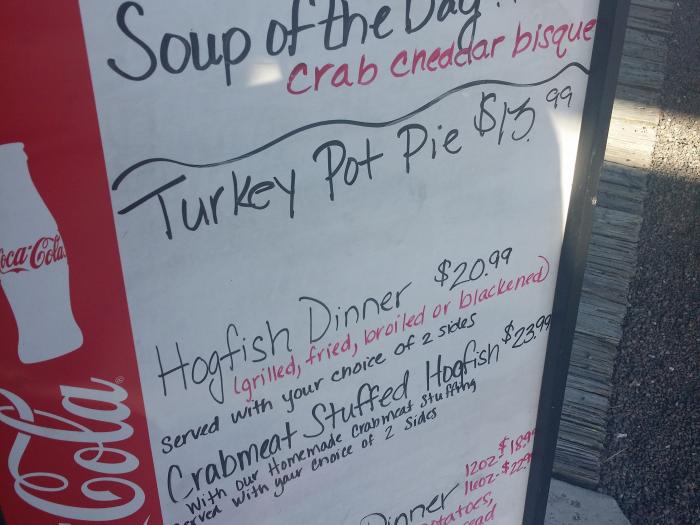 Soup of the Day
crab cheddar bisque
Turkey Pot Pie $13.99
Hogfish Dinner $20.99
(grilled, fried, broiled or blackened)
served with your choice of 2 sides
Crabmeat Stuffed Hogfish $23.99
With our Homemade Crabmeat Stuffing
served with your choice of 2 sides
Dinner
12oz-$18.99
16oz-$22.99
Coca-Cola
Cola